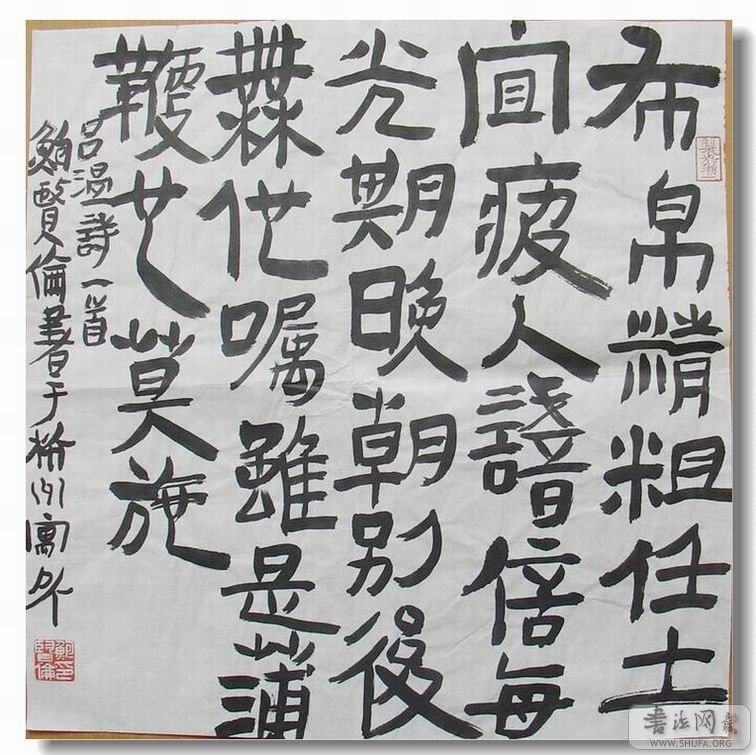 布帛精粗任土
宜疲人識信每
先期晚朝别後
無他嘱雖是蒲
鞭也莫施
吕温詩一首
鮑賢倫書于杭州寓
鮑賢倫印
书法网
WWW.SHUFA.ORG